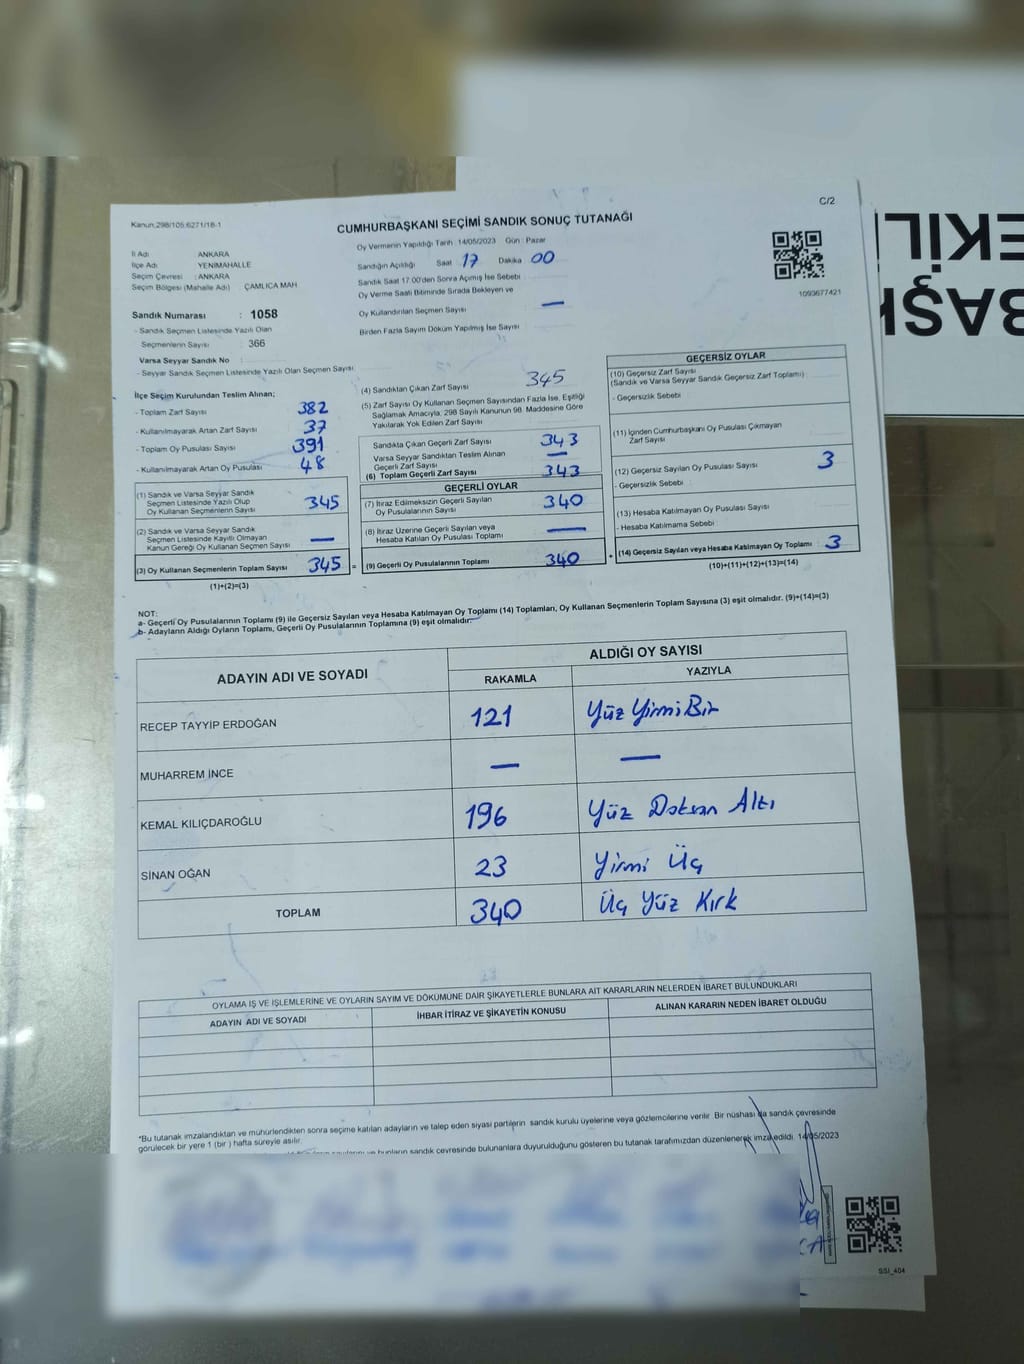 C/2
Kanun:298/105.6271/18-1
CUMHURBAŞKANI SEÇİMİ SANDIK SONUÇ TUTANAĞI
Oy Vermenin Yapıldığı Tarih :14/05/2023 Gün : Pazar
İl Adı ANKARA
İlçe Adı YENİMAHALLE
Seçim Çevresi : ANKARA
Seçim Bölgesi (Mahalle Adı) ÇAMLICA MAH
Sandığın Açıldığı Saat 17 Dakika 00
Sandık Saat 17:00'den Sonra Açılmış İse Sebebi
Oy Verme Saati Bitiminde Sırada Bekleyen ve
Oy Kullandırılan Seçmen Sayısı —
Birden Fazla Sayım Döküm Yapılmış İse Sayısı
1093677421
Sandık Numarası : 1058
- Sandık Seçmen Listesinde Yazılı Olan
Seçmenlerin Sayısı : 366
Varsa Seyyar Sandık No :
- Seyyar Sandık Seçmen Listesinde Yazılı Olan Seçmen Sayısı
İlçe Seçim Kurulundan Teslim Alınan;
- Toplam Zarf Sayısı 382
- Kullanılmayarak Artan Zarf Sayısı 37
- Toplam Oy Pusulası Sayısı 391
- Kullanılmayarak Artan Oy Pusulası 48
(1) Sandık ve Varsa Seyyar Sandık
Seçmen Listesinde Yazılı Olup
Oy Kullanan Seçmenlerin Sayısı 345
(2) Sandık ve Varsa Seyyar Sandık
Seçmen Listesinde Kayıtlı Olmayan
Kanun Gereği Oy Kullanan Seçmen Sayısı —
(3) Oy Kullanan Seçmenlerin Toplam Sayısı 345 =
(1)+(2)=(3)
(4) Sandıktan Çıkan Zarf Sayısı 345
(5) Zarf Sayısı Oy Kullanan Seçmen Sayısından Fazla İse, Eşitliği
Sağlamak Amacıyla, 298 Sayılı Kanunun 98. Maddesine Göre
Yakılarak Yok Edilen Zarf Sayısı
Sandıkta Çıkan Geçerli Zarf Sayısı 343
Varsa Seyyar Sandıktan Teslim Alınan
Geçerli Zarf Sayısı —
(6) Toplam Geçerli Zarf Sayısı 343
GEÇERLİ OYLAR
(7) İtiraz Edilmeksizin Geçerli Sayılan
Oy Pusulalarının Sayısı 340
(8) İtiraz Üzerine Geçerli Sayılan veya
Hesaba Katılan Oy Pusulası Toplamı —
(9) Geçerli Oy Pusulalarının Toplamı 340 +
GEÇERSİZ OYLAR
(10) Geçersiz Zarf Sayısı
(Sandık ve Varsa Seyyar Sandık Geçersiz Zarf Toplamı)
- Geçersizlik Sebebi
(11) İçinden Cumhurbaşkanı Oy Pusulası Çıkmayan
Zarf Sayısı
(12) Geçersiz Sayılan Oy Pusulası Sayısı 3
- Geçersizlik Sebebi
(13) Hesaba Katılmayan Oy Pusulası Sayısı
- Hesaba Katılmama Sebebi
(14) Geçersiz Sayılan veya Hesaba Katılmayan Oy Toplamı 3
(10)+(11)+(12)+(13)=(14)
NOT:
a- Geçerli Oy Pusulalarının Toplamı (9) ile Geçersiz Sayılan veya Hesaba Katılmayan Oy Toplamı (14) Toplamları, Oy Kullanan Seçmenlerin Toplam Sayısına (3) eşit olmalıdır. (9)+(14)=(3)
b- Adayların Aldığı Oyların Toplamı, Geçerli Oy Pusulalarının Toplamına (9) eşit olmalıdır.
ADAYIN ADI VE SOYADI ALDIĞI OY SAYISI
RAKAMLA YAZIYLA
RECEP TAYYIP ERDOĞAN 121 Yüz Yirmi Bir
MUHARREM İNCE — —
KEMAL KILIÇDAROĞLU 196 Yüz Doksan Altı
SİNAN OĞAN 23 Yirmi Üç
TOPLAM 340 Üç Yüz Kırk
OYLAMA İŞ VE İŞLEMLERİNE VE OYLARIN SAYIM VE DÖKÜMÜNE DAİR ŞİKAYETLERLE BUNLARA AİT KARARLARIN NELERDEN İBARET BULUNDUKLARI
ADAYIN ADI VE SOYADI İHBAR İTİRAZ VE ŞİKAYETİN KONUSU ALINAN KARARIN NEDEN İBARET OLDUĞU
*Bu tutanak imzalandıktan ve mühürlendikten sonra seçime katılan adayların ve talep eden siyasi partilerin sandık kurulu üyelerine veya gözlemcilerine verilir. Bir nüshası da sandık çevresinde
görülecek bir yere 1 (bir) hafta süreyle asılır.
sandık çevresinde bulunanlara duyurulduğunu gösteren bu tutanak tarafımızdan düzenlenerek imza edildi. 14/05/2023
SSİ_404
EKİL
BAŞK